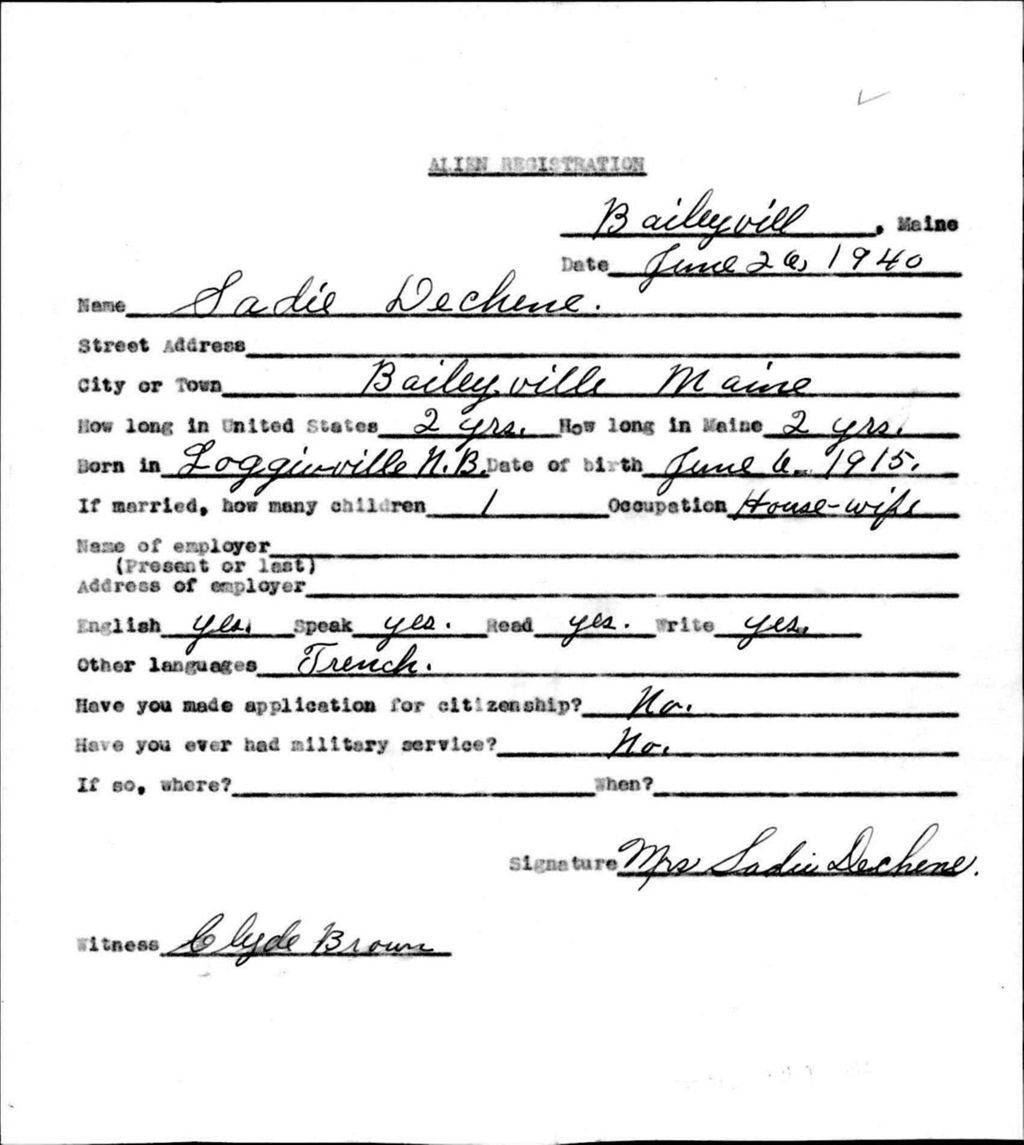 ALIEN REGISTRATION
Baileyvill, Maine
Date June 26, 1940
Name Sadie Dechene.
Street Address
City or Town Baileyville Maine
How long in United States 2 yrs. How long in Maine 2 yrs.
Born in Loggieville N.B. Date of birth June 6, 1915.
If married, how many children 1 Occupation House-wife
Name of employer
(Present or last)
Address of employer
English yes. Speak yes. Read yes. Write yes.
Other languages French.
Have you made application for citizenship? No.
Have you ever had military service? No.
If so, where? When?
Signature Mrs Sadie Dechene.
Witness Clyde Brown